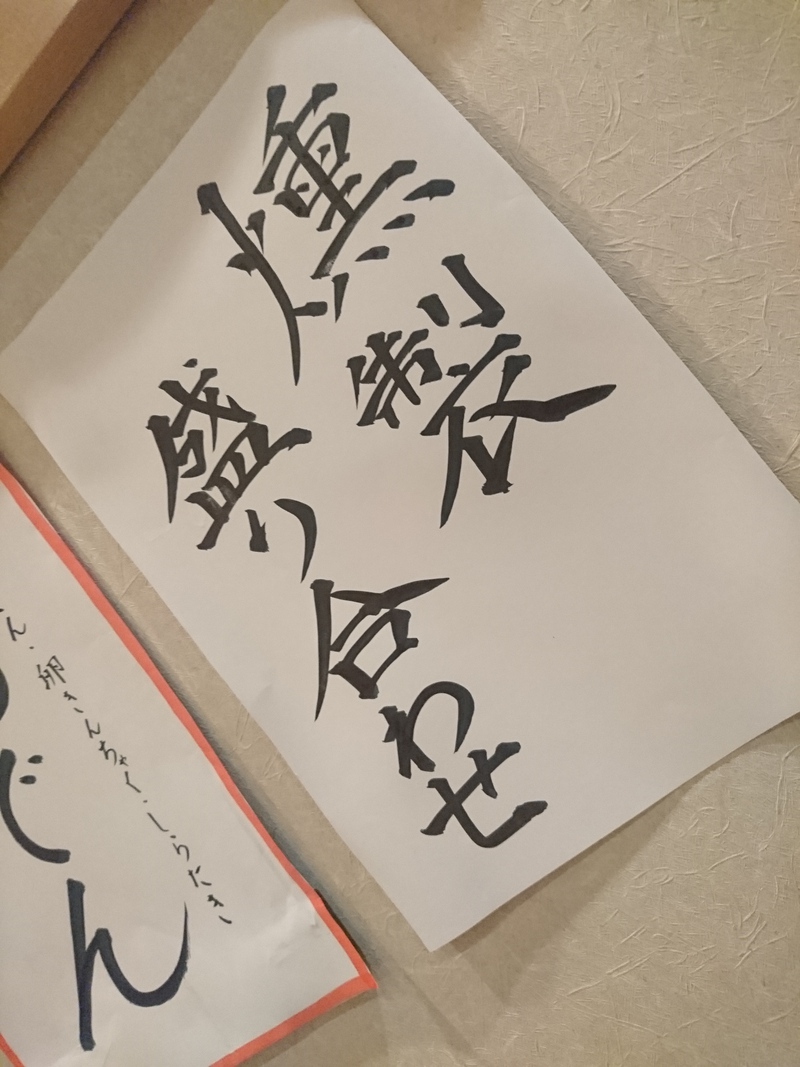 燻製
盛り合わせ
ん・卵きんちゃく・しらたき
でん